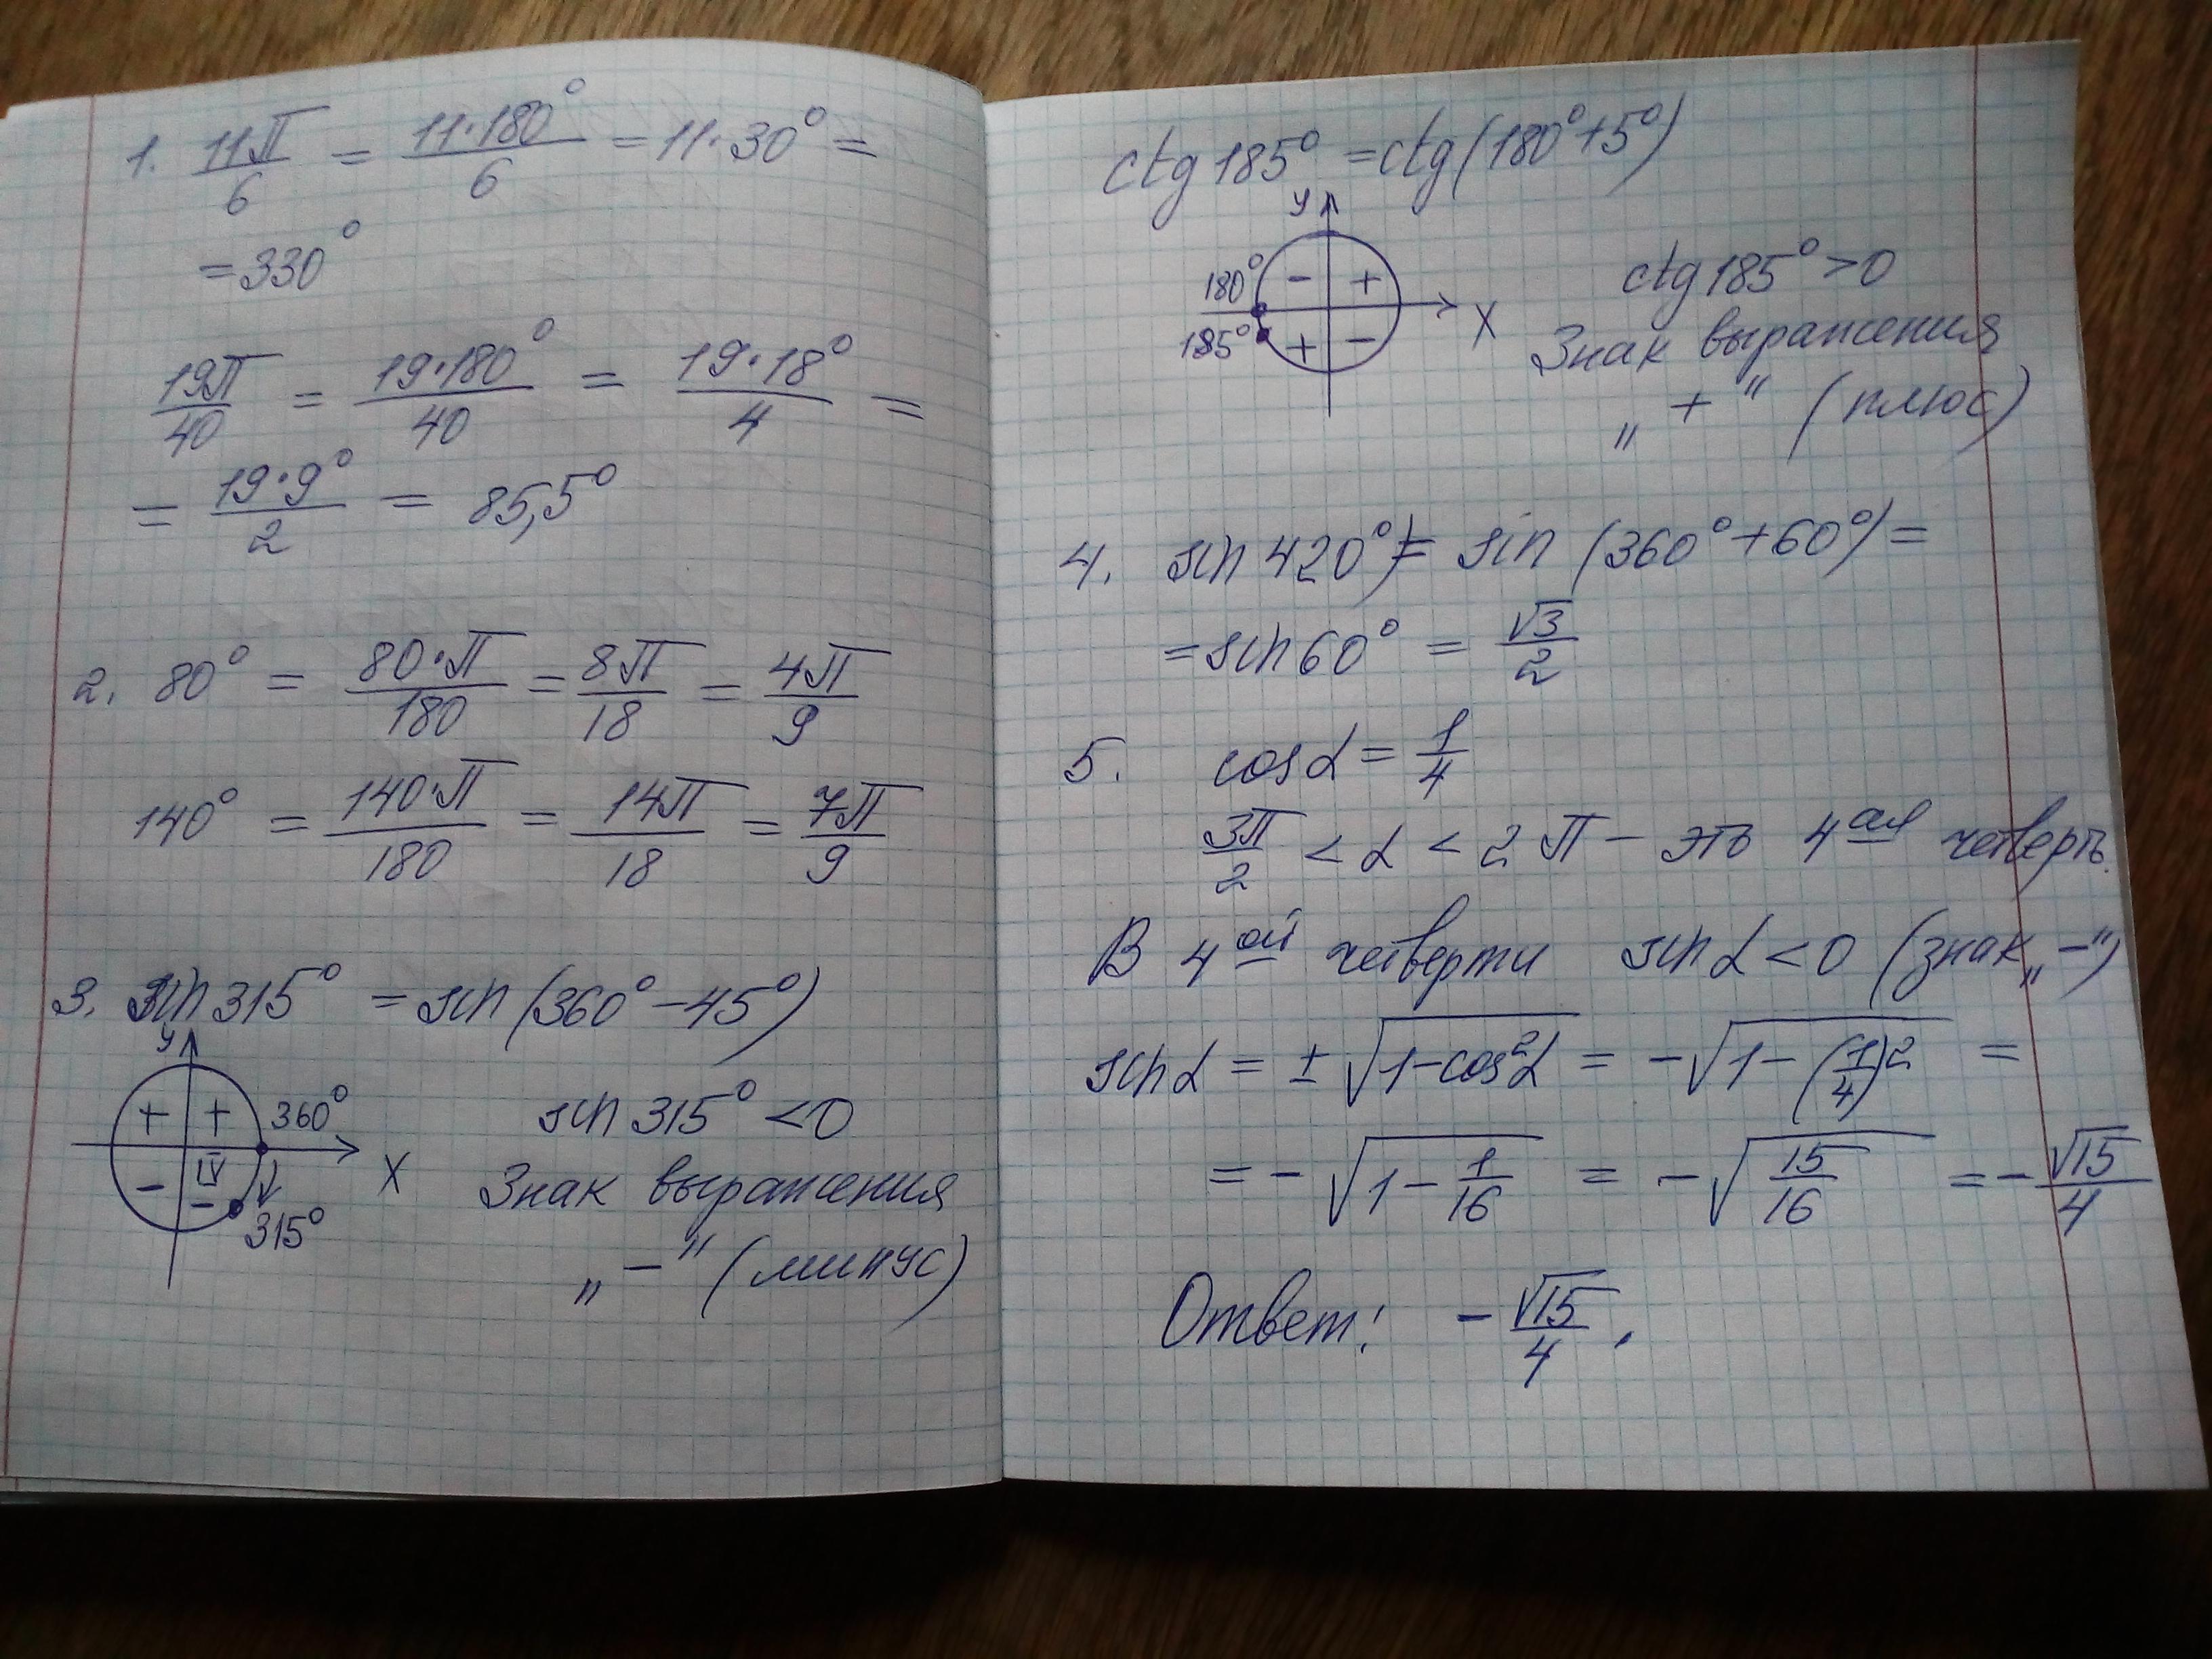 1. 11π/6 = 11·180°/6 = 11·30° =
= 330°
19π/40 = 19·180°/40 = 19·18°/4 =
= 19·9°/2 = 85,5°
2. 80° = 80·π/180 = 8π/18 = 4π/9
140° = 140·π/180 = 14π/18 = 7π/9
3. sin 315° = sin (360° - 45°)
y
+ + 360°
sin 315° < 0
x
- IV -
Знак выражения
315°
„ - " (минус)
ctg 185° = ctg (180° + 5°)
y
180° - +
ctg 185° > 0
x
185° + -
Знак выражения
„ + " (плюс)
4. sin 420°) = sin (360° + 60°) =
= sin 60° = √3/2
5. cos α = 1/4
3π/2 < α < 2π - это 4ая четверть.
В 4ой четверти sin α < 0 (знак „-")
sin α = ± √(1-cos²α) = -√(1-(1/4)²) =
= - √(1 - 1/16) = -√(15/16) = -√15/4
Ответ: - √15/4.